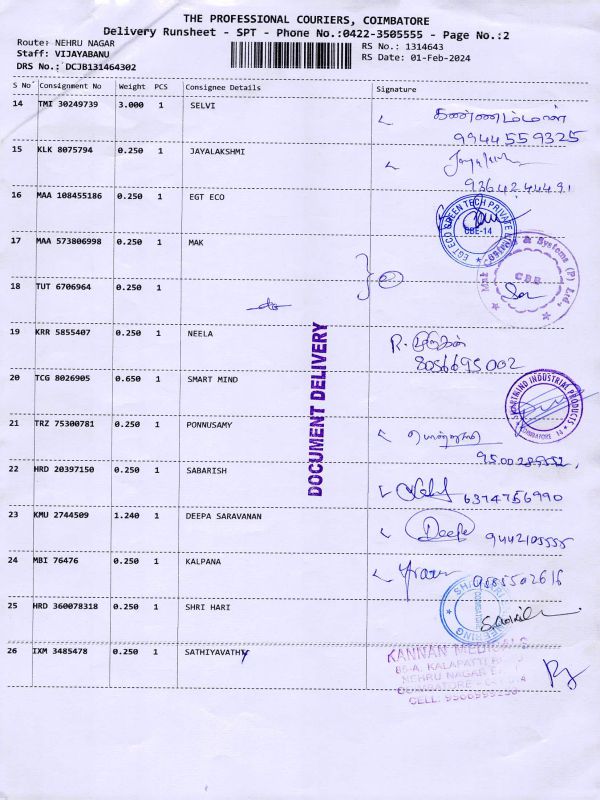 THE PROFESSIONAL COURIERS, COIMBATORE
Delivery Runsheet - SPT - Phone No.:0422-3505555 - Page No.:2
Route: NEHRU NAGAR
RS No.: 1314643
Staff: VIJAYABANU
RS Date: 01-Feb-2024
DRS No.: DCJB131464302
S No Consignment No Weight PCS Consignee Details Signature
14 TMI 30249739 3.000 1 SELVI
9944559325
15 KLK 8075794 0.250 1 JAYALAKSHMI
9364244491
16 MAA 108455186 0.250 1 EGT ECO
EGT ECO GREEN TECH PRIVATE LIMITED
CBE-14
17 MAA 573806998 0.250 1 MAK
& Systems (P) Ltd.,
CBE
18 TUT 6706964 0.250 1
19 KRR 5855407 0.250 1 NEELA
8056695002
DOCUMENT DELIVERY
20 TCG 8026905 0.650 1 SMART MIND
SMARTMIND INDUSTRIAL PRODUCTS
COIMBATORE 14
21 TRZ 75300781 0.250 1 PONNUSAMY
22 HRD 20397150 0.250 1 SABARISH
6374756990
23 KMU 2744509 1.240 1 DEEPA SARAVANAN
Deepa
24 MBI 76476 0.250 1 KALPANA
25 HRD 360078318 0.250 1 SHRI HARI
26 IXM 3485478 0.250 1 SATHIYAVATHY
KANNAN MEDICALS
KALAPATTI
NEHRU NAGAR
COIMBATORE
CELL: